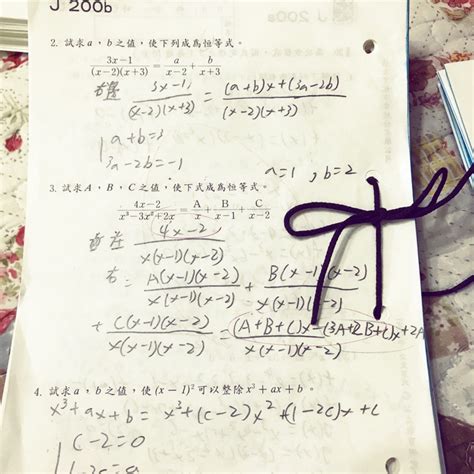 J 200b
2. 試求a，b之值，使下列成為恒等式。
(3x-1)/((x-2)(x+3)) = a/(x-2) + b/(x+3)
右邊 (3x-1)/((x-2)(x+3)) = ((a+b)x+(3a-2b))/((x-2)(x+3))
a+b=3
3a-2b=-1
a=1 , b=2
3. 試求A，B，C之值，使下式成為恒等式。
(4x-2)/(x³-3x²+2x) = A/x + B/(x-1) + C/(x-2)
左 (4x-2)/(x(x-1)(x-2))
右= A(x-1)(x-2)/(x(x-1)(x-2)) + B(x-1)(x-2)/(x(x-1)(x-2))
+ C(x-1)(x-2)/(x(x-1)(x-2)) = ((A+B+C)x-(3A+2B+C)x+2A)/(x(x-1)(x-2))
4. 試求a，b之值，使(x-1)²可以整除x³+ax+b。
x³+ax+b = x³+(c-2)x²+(1-2c)x+c
c-2=0
1-2c=a